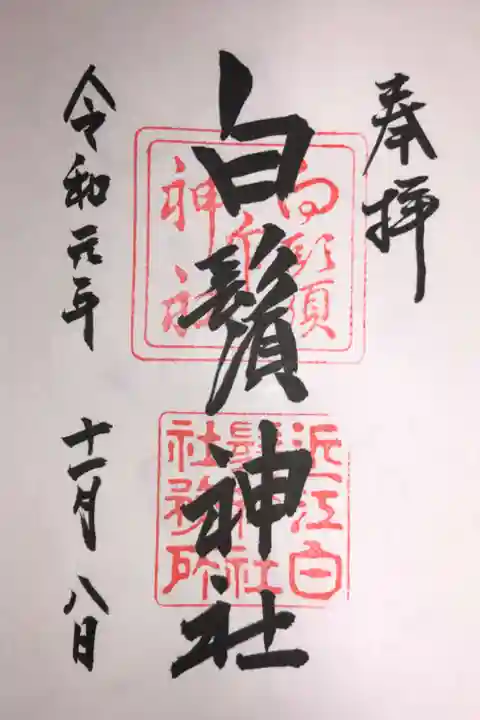 奉拝
白鬚神社
令和元年 十一月 八日
近江白
鬚神社
社務所